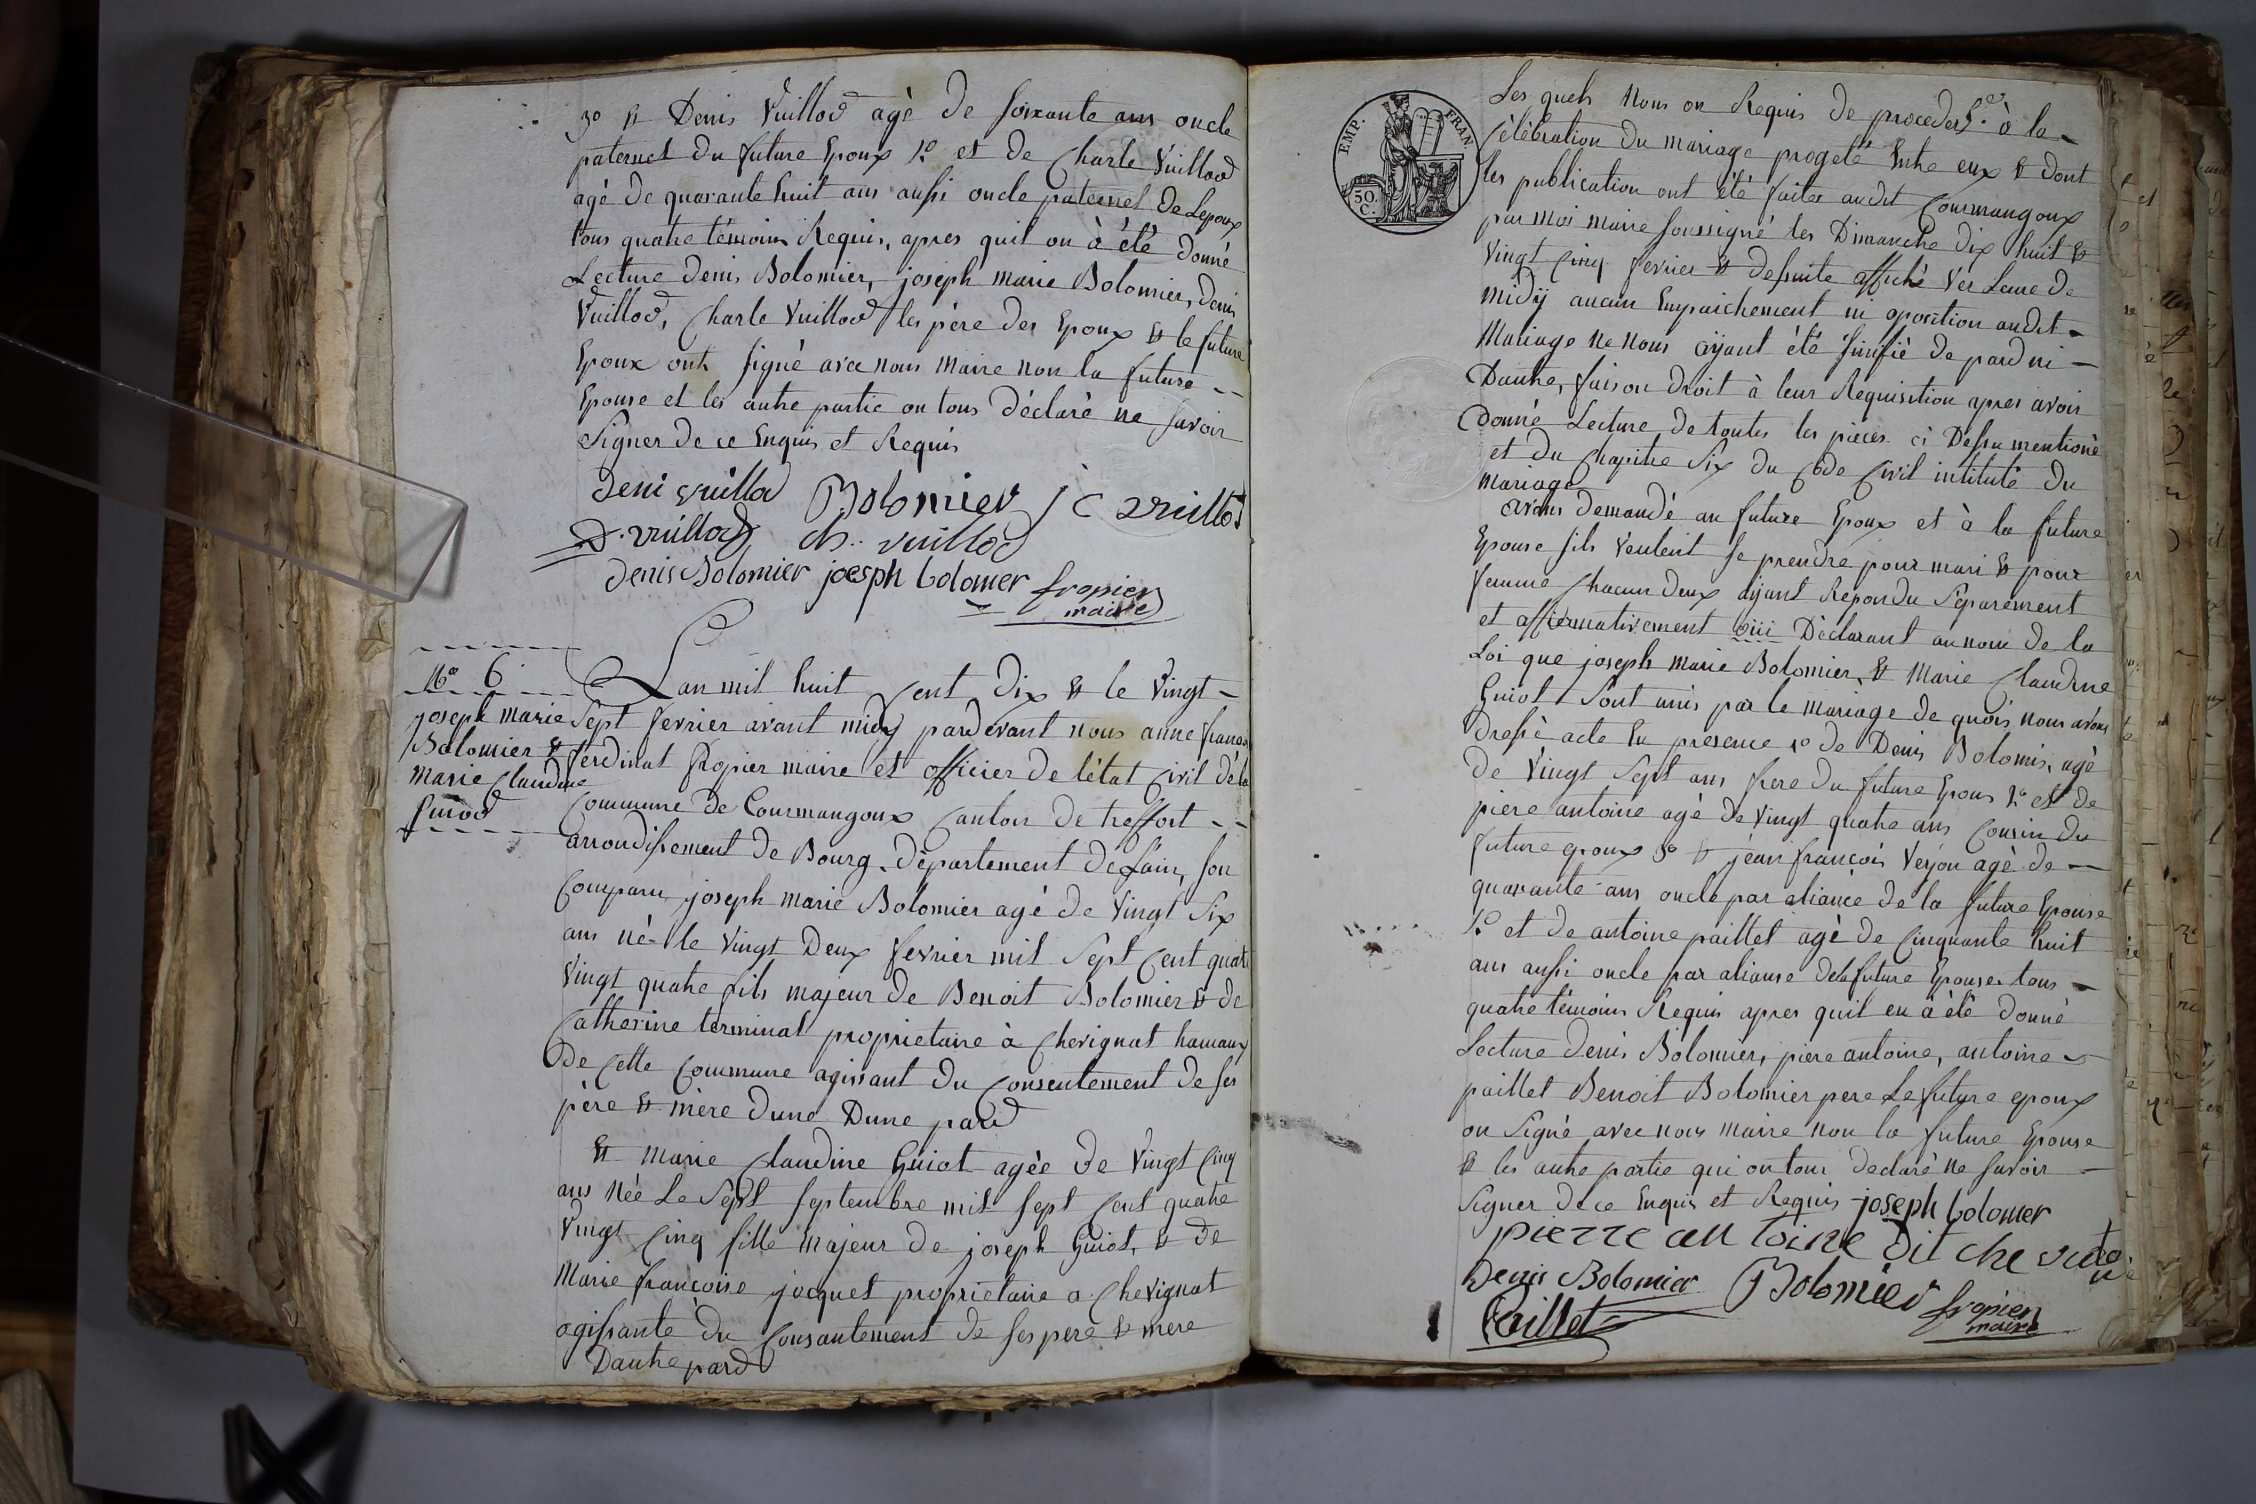 3o & Denis Vuillod agè de soixante ans oncle
paternel du future Epoux 4o et de Charle Vuillod
agè de quarante huit ans aussi oncle paternel De Lepoux
tous quatre témoins Requis, apres quil on à été Donné
Lecture Denis Bolomier, joseph marie Bolomier, Denis
Vuillod, Charle Vuillod les père des Epoux & le future
Epoux onts signé avec nous maire non la future --
Epouse et les autre partie on tous Déclaré ne savoir
Signer de ce Enquis et Requis
Deni vuillod Bolomier j c vuillod
D. vuillod ch. vuillod
Denis Bolomier joesph bolomer fropier
maire
No 6
joseph marie
Bolomier &
marie Claudine
Guiod
Lan mil huit Cent Dix & le Vingt -
Sept fevrier avant midy pardevant nous anne francois
ferdinat fropier maire et officier de l'état Civil déla
Commune de Courmangoux Canton de treffort --
arrondissement de Bourg. Département De Lain, son
Comparu joseph marie Bolomier agé de Vingt Six
ans né le Vingt Deux fevrier mil Sept Cent quatre
Vingt quatre fils majeur de Benoit Bolomier & de
Catherine terminal proprietaire à Chevignat hamaux
De Cette Commune agissant Du Consentement de ses
père & mère Dune Dune pard
& Marie Claudine Guiot agée de Vingt Cinq
ans Née Le Sept Septembre mil sept Cent quatre
Vingt Cinq fille majeur de joseph Guiot, & de
Marie françoise jocquet proprietaire a Chevignat
agissante Du Consantement de ses pere & mere
Dautre pard
EMP. FRAN.
50.
C.
Les quels Nous on Requis de proceder à la -
Célébration du mariage progeté Entre eux & dont
les publication ont été faites audit Courmangoux
par moi maire soussigné les Dimanche dix huit &
Vingt Cinq fevrier & desuite affiché Ver Leure de
Midÿ aucun Empaichement ni oposition audit -
Mariage ne nous aÿant été sinifié de pard ni -
Dautre, faison Droit à leur Requisition apres avoir
Donné Lecture de toutes les pièces ci Dessu mentioné
et du Chapitre Six du Côde Civil intitulé Du
mariage
avons Demandé au future Epoux et à la future
Epouse sils Veuleit se prendre pour mari & pour
femme Chacun Deux aÿant Repondu Séparement
et affirmativement oüi Déclarant au nom de la
Loi que joseph marie Bolomier, & Marie Claudine
Guiot Sont unis par le mariage de quois nous avons
Dressé acte En presence 1o de Denis Bolomié, agé
de Vingt Sept ans frere Du future Epous 2o et de
piere antoine agé De Vingt quatre ans Cousin Du
future epoux 3o & jean francois Veyon agè de -
quarante ans oncle par aliance de la future Epouse
4o et de antoine paillet agè de Cinquante huit
ans aussi oncle par alianse dela future Epouse tous -
quatre témoins Requis apres quil en à été Donné
Lecture Denis Bolomier, piere antoine, antoine -
paillet Benoit Bolomier pere Le future epoux
on Signé avec nous maire non la future Epouse
& les autre partie qui on tous Declaré ne savoir -
Signer de ce Enquis et Requis joseph bolomer
pierre an toine dit che vreto
Denis Bolomier Bolomier fropier
Paillet maire